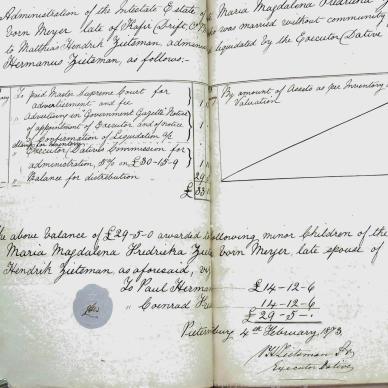 Administration of the Intestate Estate of
Maria Magdalena Fredrieka
born Meyer, late of Kafir Drift,
was married without community
to Matthias Hendrik Zietsman,
liquidated by the Executor Dative
Hermanus Zietsman, as follows:-
To paid Master Supreme Court for
advertisement and fee
Advertising in Government Gazette Notice
of appointment of Executor and of notice
of Confirmation of Liquidation a/c
Stamp for Inventory
Executor Datives Commission for
administration, 5% on £30-15-9
Balance for distribution
£
By amount of Assets as per Inventory
Valuation
above balance of £29-5-0 awarded to
following minor Children of the
Maria Magdalena Fredrieka
born Meyer, late spouse of
Hendrik Zietsman, as aforesaid,
To Paul Herman
£14-12-6
" Coenrad
14-12-6
£29-5-
4th February, 1873,
Executor Dative